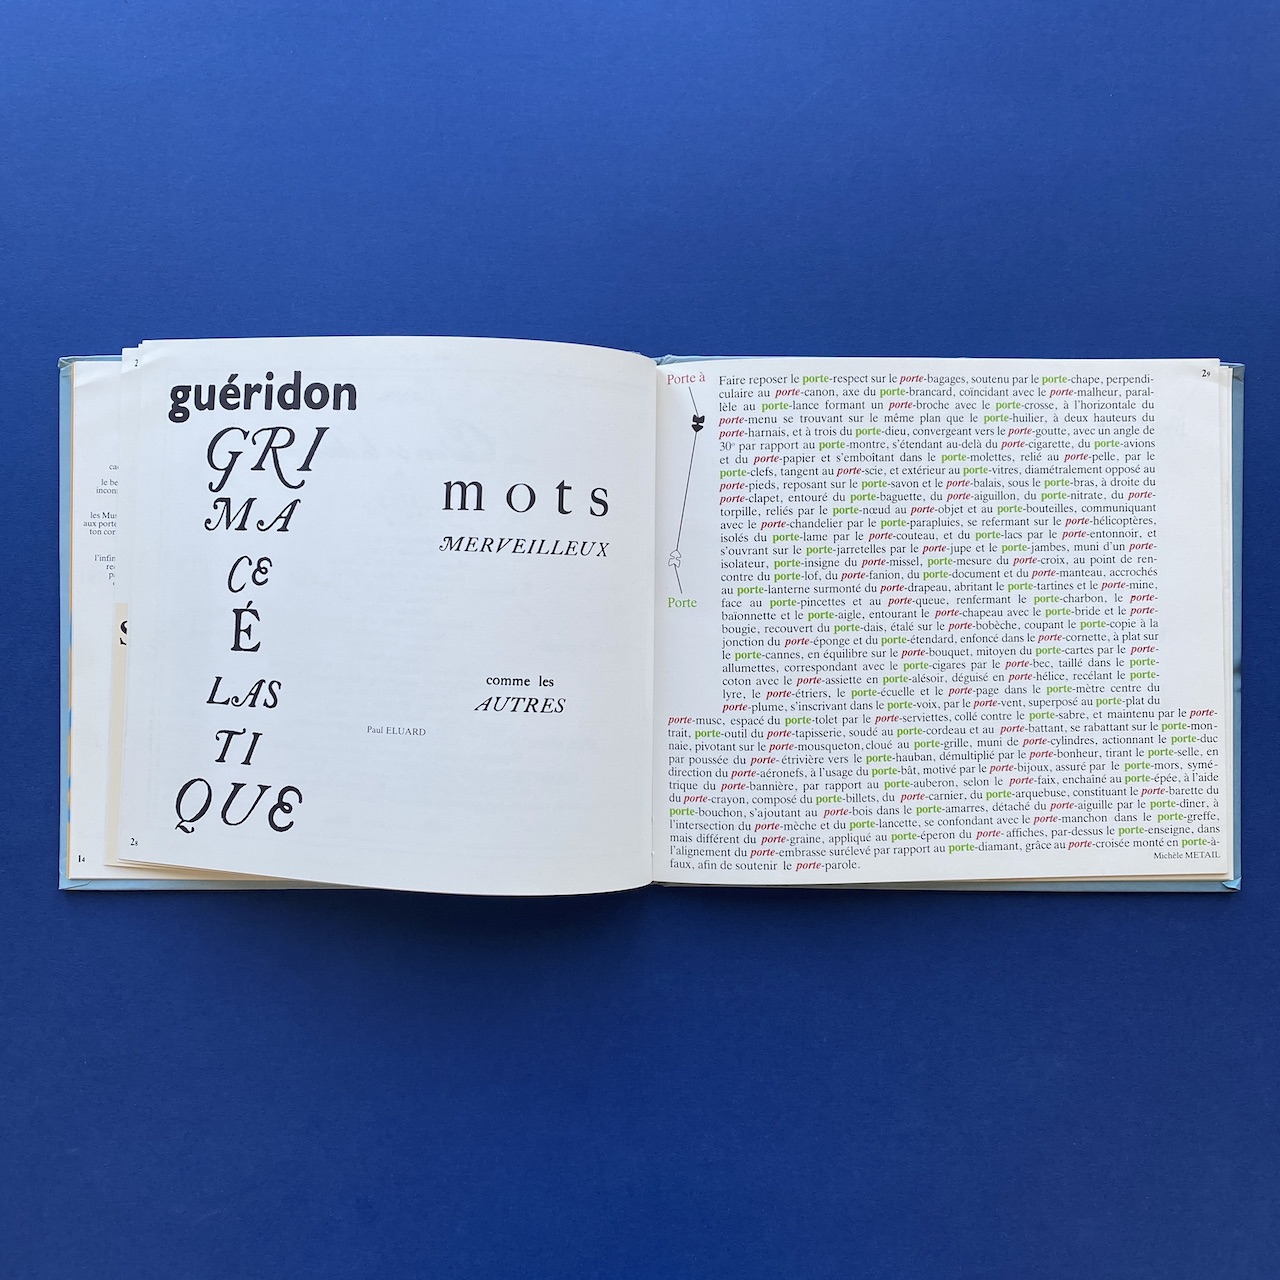 ca
le be
incon
les Mus
aux porte
ton cor
l'infin
14
2
guéridon
GRI
MA
CE
É
LAS
TI
QUE
28
mots
MERVEILLEUX
comme les
AUTRES
Paul ELUARD
29
Porte à
Porte
Faire reposer le porte-respect sur le porte-bagages, soutenu par le porte-chape, perpendi-
culaire au porte-canon, axe du porte-brancard, coïncidant avec le porte-malheur, paral-
lèle au porte-lance formant un porte-broche avec le porte-crosse, à l'horizontale du
porte-menu se trouvant sur le même plan que le porte-huilier, à deux hauteurs du
porte-harnais, et à trois du porte-dieu, convergeant vers le porte-goutte, avec un angle de
30° par rapport au porte-montre, s'étendant au-delà du porte-cigarette, du porte-avions
et du porte-papier et s'emboîtant dans le porte-molettes, relié au porte-pelle, par le
porte-clefs, tangent au porte-scie, et extérieur au porte-vitres, diamétralement opposé au
porte-pieds, reposant sur le porte-savon et le porte-balais, sous le porte-bras, à droite du
porte-clapet, entouré du porte-baguette, du porte-aiguillon, du porte-nitrate, du porte-
torpille, reliés par le porte-nœud au porte-objet et au porte-bouteilles, communiquant
avec le porte-chandelier par le porte-parapluies, se refermant sur le porte-hélicoptères,
isolés du porte-lame par le porte-couteau, et du porte-lacs par le porte-entonnoir, et
s'ouvrant sur le porte-jarretelles par le porte-jupe et le porte-jambes, muni d'un porte-
isolateur, porte-insigne du porte-missel, porte-mesure du porte-croix, au point de ren-
contre du porte-lof, du porte-fanion, du porte-document et du porte-manteau, accrochés
au porte-lanterne surmonté du porte-drapeau, abritant le porte-tartines et le porte-mine,
face au porte-pincettes et au porte-queue, renfermant le porte-charbon, le porte-
baïonnette et le porte-aigle, entourant le porte-chapeau avec le porte-bride et le porte-
bougie, recouvert du porte-dais, étalé sur le porte-bobèche, coupant le porte-copie à la
jonction du porte-éponge et du porte-étendard, enfoncé dans le porte-cornette, à plat sur
le porte-cannes, en équilibre sur le porte-bouquet, mitoyen du porte-cartes par le porte-
allumettes, correspondant avec le porte-cigares par le porte-bec, taillé dans le porte-
coton avec le porte-assiette en porte-alésoir, déguisé en porte-hélice, recélant le porte-
lyre, le porte-étriers, le porte-écuelle et le porte-page dans le porte-mètre centre du
porte-plume, s'inscrivant dans le porte-voix, par le porte-vent, superposé au porte-plat du
porte-musc, espacé du porte-tolet par le porte-serviettes, collé contre le porte-sabre, et maintenu par le porte-
trait, porte-outil du porte-tapisserie, soudé au porte-cordeau et au porte-battant, se rabattant sur le porte-mon-
naie, pivotant sur le porte-mousqueton, cloué au porte-grille, muni de porte-cylindres, actionnant le porte-duc
par poussée du porte-étrivière vers le porte-hauban, démultiplié par le porte-bonheur, tirant le porte-selle, en
direction du porte-aéronefs, à l'usage du porte-bât, motivé par le porte-bijoux, assuré par le porte-mors, symé-
trique du porte-bannière, par rapport au porte-auberon, selon le porte-faix, enchaîné au porte-épée, à l'aide
du porte-crayon, composé du porte-billets, du porte-carnier, du porte-arquebuse, constituant le porte-barette du
porte-bouchon, s'ajoutant au porte-bois dans le porte-amarres, détaché du porte-aiguille par le porte-dîner, à
l'intersection du porte-mèche et du porte-lancette, se confondant avec le porte-manchon dans le porte-greffe,
mais différent du porte-graine, appliqué au porte-éperon du porte-affiches, par-dessus le porte-enseigne, dans
l'alignement du porte-embrasse surélevé par rapport au porte-diamant, grâce au porte-croisée monté en porte-à-
faux, afin de soutenir le porte-parole.
Michèle METAIL